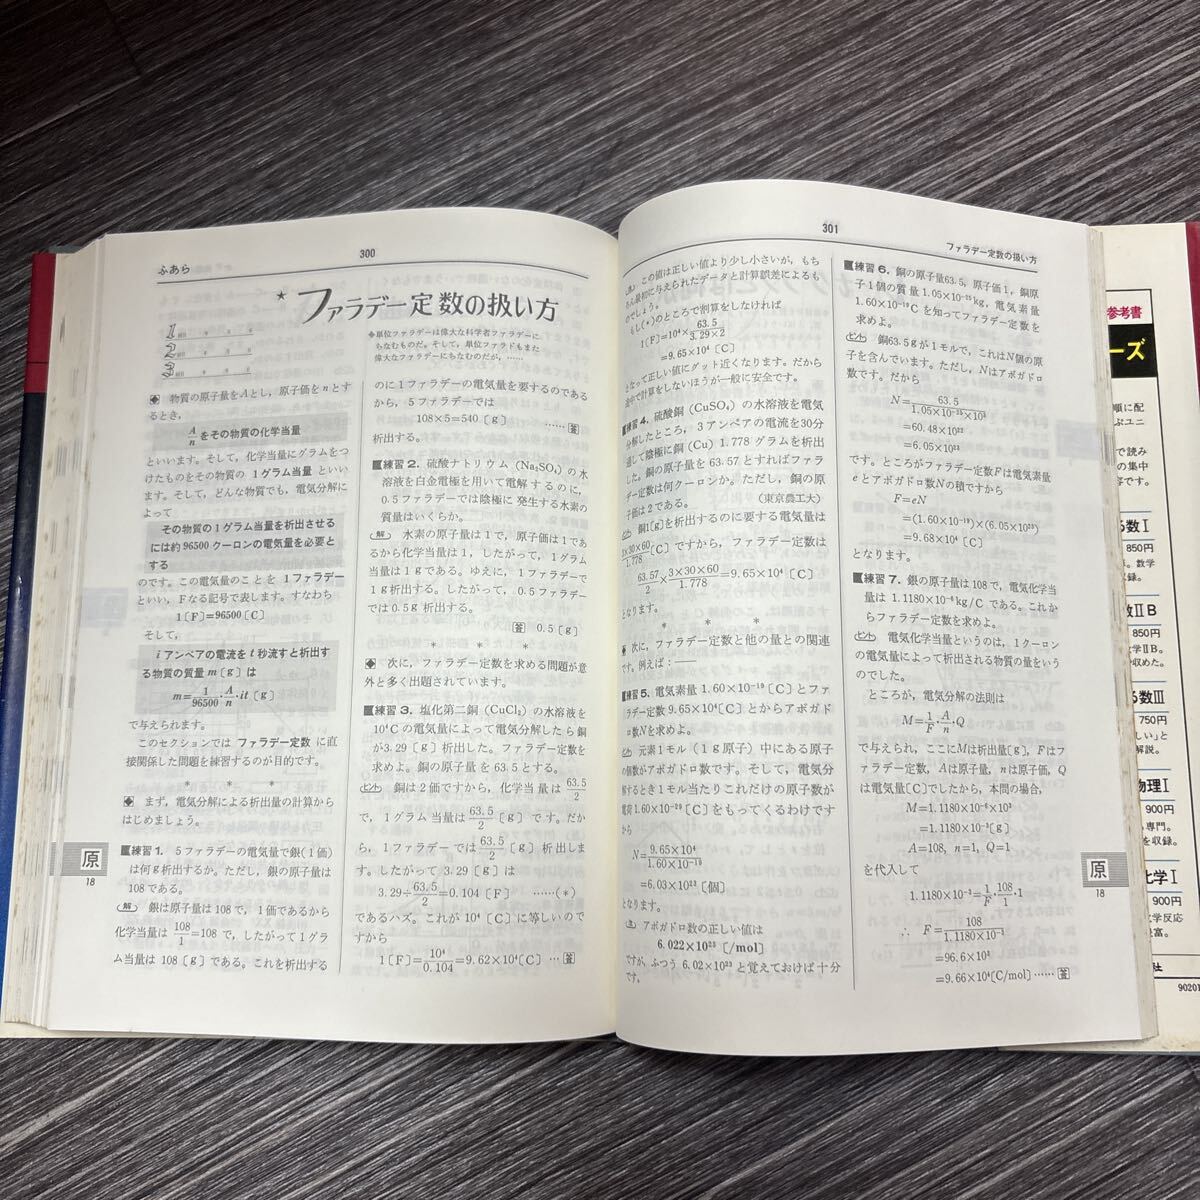 300
ふあら
★ファラデー定数の扱い方
1回目
2回目
3回目
◆単位ファラデーは偉大な科学者ファラデーに
ちなむものだ。そして,単位ファラドもまた
偉大なファラデーにちなむのだが,……
◆ 物質の原子量をAとし,原子価をnとす
るとき,
A/n をその物質の化学当量
といいます。そして,化学当量にグラムをつ
けたものをその物質の 1グラム当量 といい
ます。そして,どんな物質でも,電気分解に
よって
その物質の1グラム当量を析出させる
には約 96500 クーロンの電気量を必要と
する
のです。この電気量のことを 1ファラデー
といい,Fなる記号で表します。すなわち
1〔F〕=96500〔C〕
そして,
i アンペアの電流を t 秒流すと析出す
る物質の質量 m〔g〕は
m=1/96500・A/n・it〔g〕
で与えられます。
このセクションでは ファラデー定数 に直
接関係した問題を練習するのが目的です。
* * *
◆ まず,電気分解による析出量の計算から
はじめましょう。
■練習1. 5ファラデーの電気量で銀(1価)
は何g析出するか。ただし,銀の原子量は
108である。
解 銀は原子量は108で,1価であるから
化学当量は 108/1=108 で,したがって1グラ
ム当量は 108〔g〕である。これを析出する
原
18
のに1ファラデーの電気量を要するのである
から,5ファラデーでは
108×5=540〔g〕 ……答
析出する。
■練習2. 硫酸ナトリウム(Na₂SO₄)の水
溶液を白金電極を用いて電解するのに,
0.5ファラデーでは陰極に発生する水素の
質量はいくらか。
解 水素の原子量は1で,原子価は1であ
るから化学当量は1,したがって,1グラム
当量は1gである。ゆえに,1ファラデーで
1g析出する。したがって,0.5ファラデー
では0.5g析出する。
答 0.5〔g〕
* * *
◆ 次に,ファラデー定数を求める問題が意
外と多く出題されています。
■練習3. 塩化第二銅(CuCl₂)の水溶液を
10⁴Cの電気量によって電気分解したら銅
が3.29〔g〕析出した。ファラデー定数を
求めよ。銅の原子量を63.5とする。
ヒント 銅は2価ですから,化学当量は 63.5/2
で,1グラム当量は 63.5/2〔g〕です。だか
ら,1ファラデーでは 63.5/2〔g〕析出しま
す。したがって 3.29〔g〕は
3.29÷63.5/2=0.104〔F〕 ……(*)
であるハズ。これが 10⁴〔C〕に等しいので
すから
1〔F〕=10⁴/0.104=9.62×10⁴〔C〕…答
301
ファラデー定数の扱い方
この値は正しい値より少し小さいが,もち
ろん最初に与えられたデータと計算誤差によるも
のでしょう。
もし(*)のところで割算をしなければ
1〔F〕=10⁴×63.5/3.29×2
=9.65×10⁴〔C〕
となって正しい値にグット近くなります。だから
途中で計算をしないほうが一般に安全です。
■練習4. 硫酸銅(CuSO₄)の水溶液を電気
分解したところ,3アンペアの電流を30分
通して陰極に銅(Cu)1.778グラムを析出
した。銅の原子量を63.57とすればファラ
デー定数は何クーロンか。ただし,銅の原
子価は2である。 (東京農工大)
ヒント 銅1〔g〕を析出するのに要する電気量は
3×30×60/1.778〔C〕ですから,ファラデー定数は
63.57/2×3×30×60/1.778=9.65×10⁴〔C〕
となります。
* * *
◆ 次に,ファラデー定数と他の量との関連
です。例えば:――
■練習5. 電気素量 1.60×10⁻¹⁹〔C〕とファ
ラデー定数 9.65×10⁴〔C〕とからアボガド
ロ数Nを求めよ。
ヒント 元素1モル(1g原子)中にある原子
の個数がアボガドロ数です。そして,電気分
解するとき1モル当りこれだけの原子数が
電荷 1.60×10⁻²⁹〔C〕をもってくるわけです
から
N=9.65×10⁴/1.60×10⁻¹⁹
=6.03×10²³〔個〕
となります。
アボガドロ数の正しい値は
6.022×10²³〔/mol〕
ですが,ふつう 6.02×10²³と覚えておけば十分
です。
■練習6. 銅の原子量63.5,原子価1,銅原
子1個の質量 1.05×10⁻²⁵kg,電気素量
1.60×10⁻¹⁹C を知ってファラデー定数を
求めよ。
ヒント 銅63.5gが1モルで,これはN個の原
子を含んでいます。ただし,Nはアボガドロ
数です。だから
N=63.5/1.05×10⁻²⁵×10³
=60.48×10²²
=6.05×10²³
です。ところがファラデー定数Fは電気素量
eとアボガドロ数Nの積ですから
F=eN
=(1.60×10⁻¹⁹)×(6.05×10²³)
=9.68×10⁴〔C〕
となります。
■練習7. 銀の原子量は108で,電気化学当
量は 1.1180×10⁻⁶kg/C である。これか
らファラデー定数を求めよ。
ヒント 電気化学当量というのは,1クーロン
の電気量によって析出される物質の量をいう
のでした。
ところが,電気分解の法則は
M=1/F・A/n・Q
で与えられ,ここにMは析出量〔g〕,Fはフ
ァラデー定数,Aは原子量,nは原子価,Q
は電気量〔C〕でしたから,本問の場合,
M=1.1180×10⁻⁶×10³
=1.1180×10⁻³〔g〕
A=108, n=1, Q=1
を代入して
1.1180×10⁻³=1/F・108/1・1
∴ F=108/1.1180×10⁻³
=96.6×10³
=9.66×10⁴〔C/mol〕……答
原
18
参考書
ーズ
順に配
ぶユニ
で読み
の集中
容です。
る数Ⅰ
850円
。数学
収録。
数ⅡB
850円
学ⅡB。
収めた。
る数Ⅲ
750円
しい」と
解説。
物理Ⅰ
900円
専門。
を収録。
化学Ⅰ
900円
化学反応
豊富。
社
90201